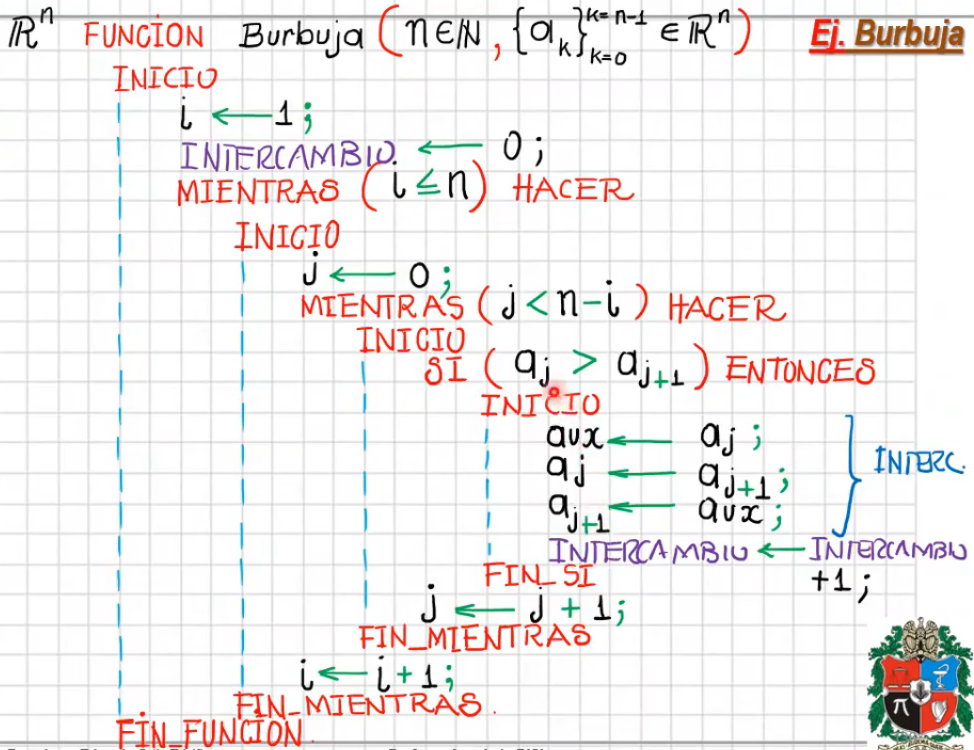 ℝⁿ FUNCIÓN Burbuja (n∈ℕ, {aₖ}ₖ₌₀ᵏ⁼ⁿ⁻¹ ∈ ℝⁿ) Ej. Burbuja
INICIO
i ← 1;
INTERCAMBIO. ← 0;
MIENTRAS (i ≤ n) HACER
INICIO
j ← 0;
MIENTRAS (j < n-i) HACER
INICIO
SI (aⱼ > aⱼ₊₁) ENTONCES
INICIO
aux ← aⱼ;
aⱼ ← aⱼ₊₁; INTERC.
aⱼ₊₁ ← aux;
INTERCAMBIO ← INTERCAMBIO
+1;
FIN_SI
j ← j + 1;
FIN_MIENTRAS
i ← i + 1;
FIN_MIENTRAS.
FIN_FUNCION.